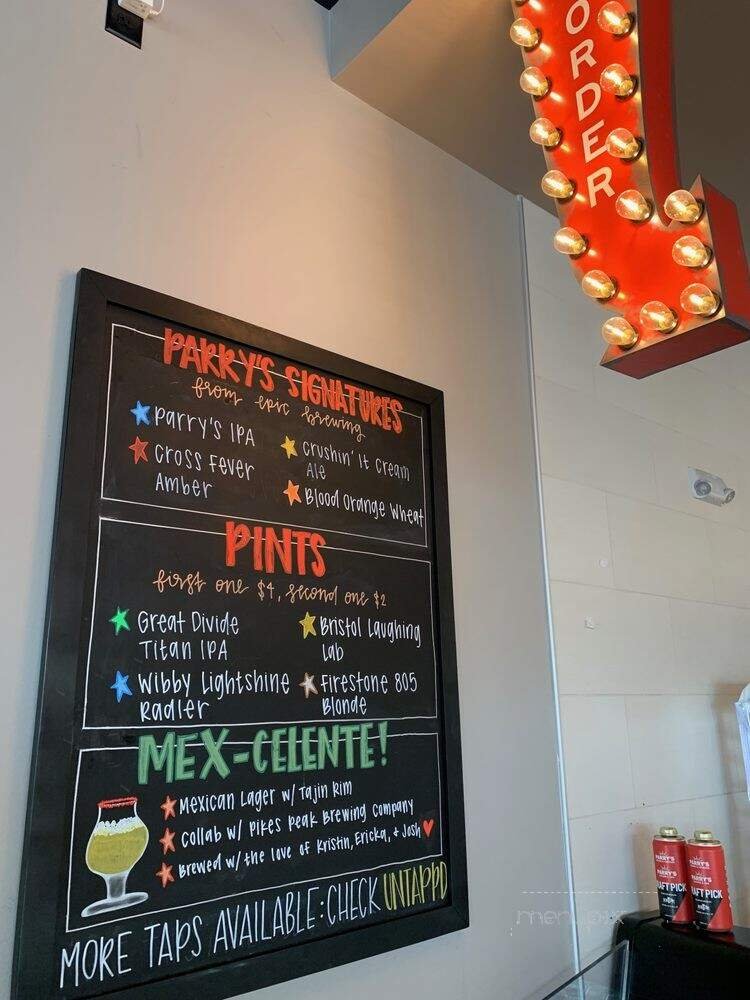 ORDER
PARRY'S SIGNATURES
from epic brewing
Parry's IPA
Cross Fever
Amber
Crushin' It Cream
Ale
Blood Orange Wheat
PINTS
first one $4, second one $2
Great Divide
Titan IPA
Wibby Lightshine
Radler
Bristol Laughing
Lab
Firestone 805
Blonde
MEX-CELENTE!
Mexican Lager w/ Tajin Rim
Collab w/ Pikes Peak Brewing Company
Brewed w/ the love of Kristin, Ericka, + Josh
MORE TAPS AVAILABLE: CHECK UNTAPPD
PARRY'S
PARRY'S
AFT PICK